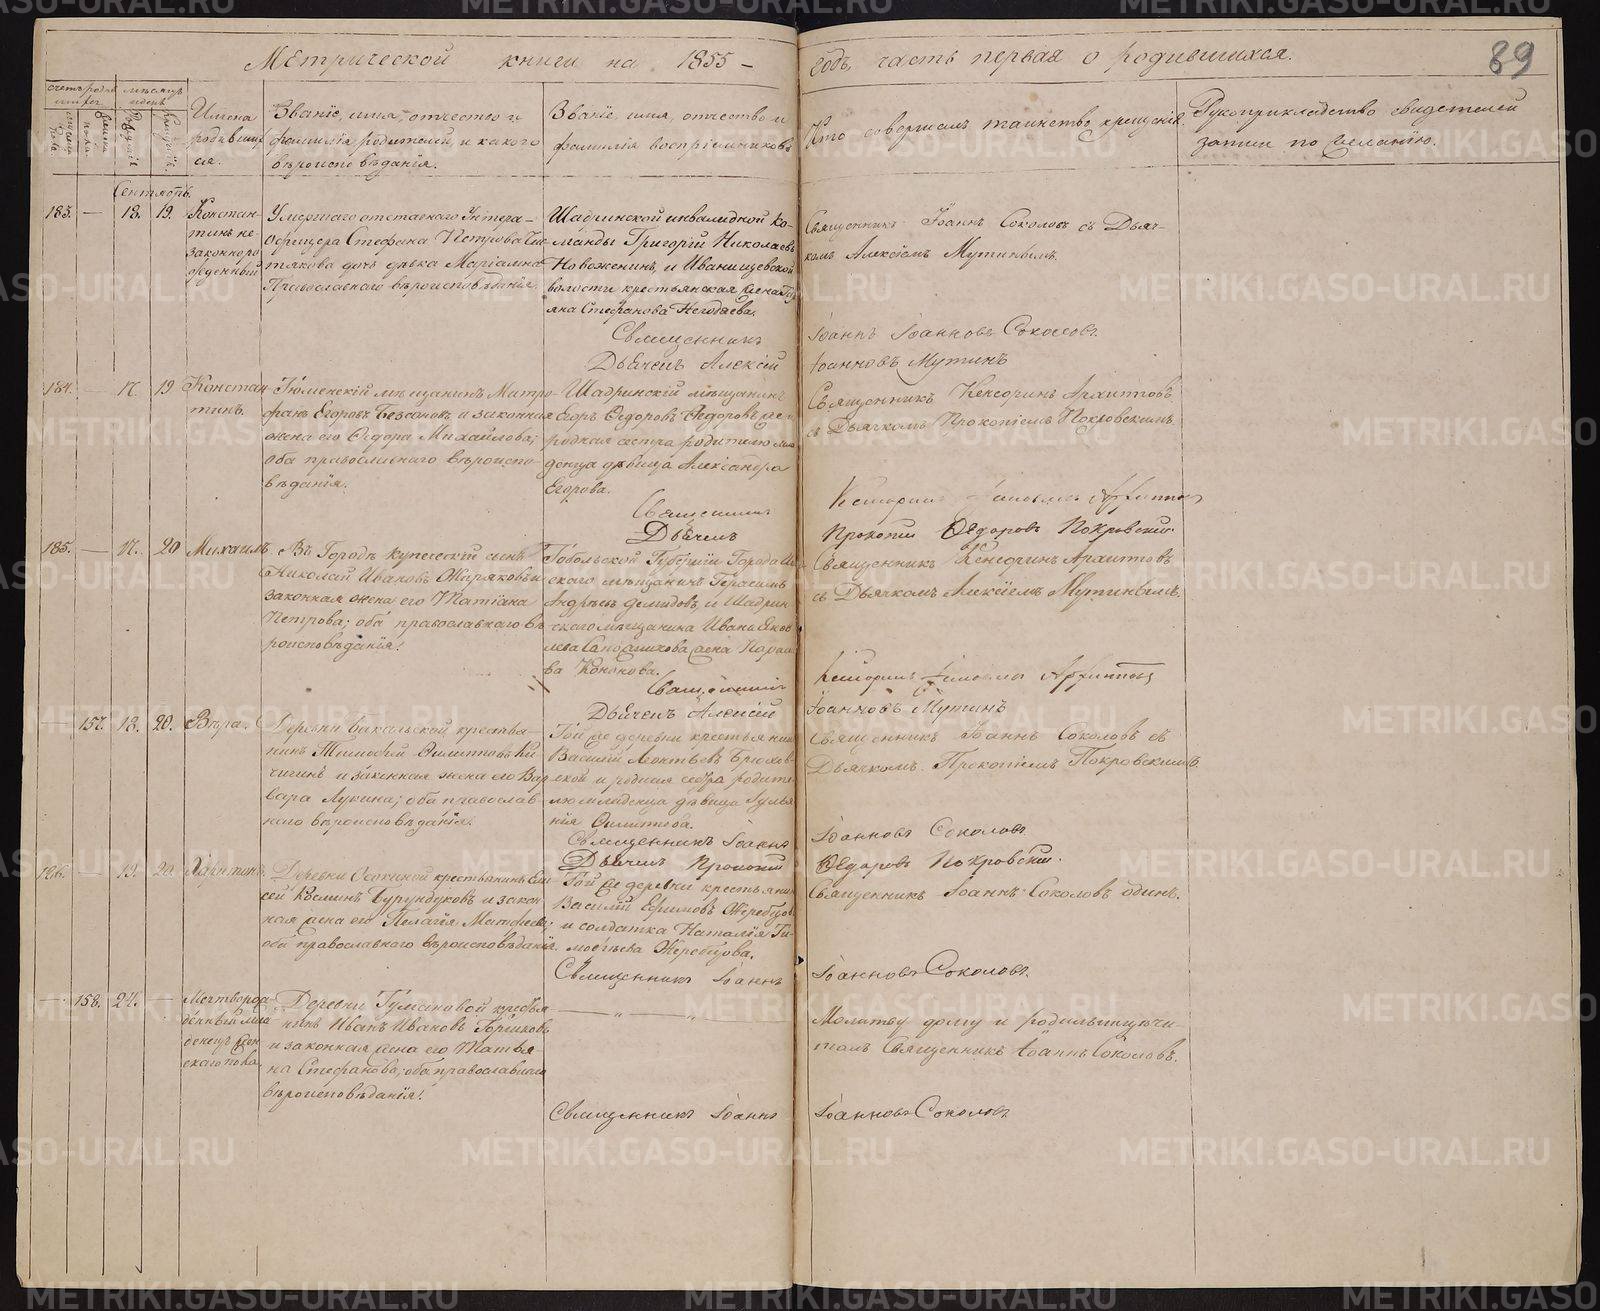 Метрической книги на 1855 –
годъ, часть первая о родившихся.
89
Имена родившихся.
Званіе, имя, отчество и
фамилія родителей, и какого
вѣроисповѣданія.
Званіе, имя, отчество и
фамилія воспріемниковъ
Кто совершалъ таинство крещенія.
Рукоприкладство свидетелей
записи по желанію.
Сентябрь.
183. — 18. 19.
Констан-
тинъ не-
законноро
жденный
Умершаго отставнаго Унтера-
Офицера Стефана Петрова
дочь дѣвка Маріамна
Православнаго вѣроисповѣданія
Шадринской инвалидной ко-
манды Григорій Николаевъ
Новоженинъ, и Иванищевской
волости крестьянская жена
Стефанова Негодяева.
Священникъ Іоаннъ Соколовъ съ Дьяч-
комъ Алексіемъ Мутинымъ.
Священникъ Іоаннъ Іоанновъ Соколовъ.
Дьячекъ Алексій Іоанновъ Мутинъ
184. — 17. 19
Констан-
тинъ.
Тюменскій мѣщанинъ Митро-
фанъ Егоровъ Безсоновъ и законная
жена его Ѳедора Михайлова;
оба православнаго вѣроиспо-
вѣданія.
Шадринскій мѣщанинъ
Егоръ Ѳедоровъ Ѳедоровъ и
родная сестра родителю мла
денца дѣвица Александра
Егорова.
Священникъ Кенсоринъ Архиповъ
съ Дьячкомъ Прокопіемъ Покровскимъ
Священникъ
Дьячекъ Прокопій Ѳедоровъ Покровскій
185. — 17. 20
Михаилъ.
Въ Городѣ купеческій сынъ
Николай Ивановъ Ширяковъ и
законная жена его Татіана
Петрова; оба православнаго вѣ
роисповѣданія.
Тобольской Губерніи Города
скаго мѣщанинъ Герасимъ
Андрѣевъ Демидовъ, и Шадрин
скаго мѣщанина Ивана Яков
лева Сапожникова жена
Кононова.
Священникъ Кенсоринъ Архиповъ
съ Дьячкомъ Алексіемъ Мутинымъ.
Священникъ
Дьячекъ Алексій Іоанновъ Мутинъ
— 157. 18. 20.
Вѣра.
Деревни Бакальской крестья-
нинъ Тимоѳей Филитовъ Ки-
чигинъ и законная жена его Вар
вара Лукина; оба православ-
наго вѣроисповѣданія.
Той же деревни крестьянинъ
Василій Леонтьевъ Брюхов-
ской и родная сестра родите-
лю младенца дѣвица Іулья
нія Филитова.
Священникъ Іоаннъ Соколовъ съ
Дьячкомъ Прокопіемъ Покровскимъ.
Священникъ Іоаннъ Іоанновъ Соколовъ
Дьячекъ Прокопій Ѳедоровъ Покровскій.
186. — 19. 20.
Харитонъ.
Деревни Осокиной крестьянинъ Ели
сей Козминъ Бурундуковъ и закон
ная жена его Пелагія Матѳеева;
оба православнаго вѣроисповѣданія.
Той же деревни крестьянинъ
Василій Ефимовъ Жеребцовъ
и солдатка Наталія Ти-
моѳеева Жеребцова.
Священникъ Іоаннъ Соколовъ одинъ.
Священникъ Іоаннъ Іоанновъ Соколовъ.
— 158. 24. —
Мертворож
денный мла
денецъ жен
скаго пола.
Деревни Тумановой крестья
нинъ Иванъ Ивановъ Горшковъ
и законная жена его Татья-
на Стефанова; оба православнаго
вѣроисповѣданія.
— „ — „ —
Молитву дому и родильницѣ чи-
талъ Священникъ Іоаннъ Соколовъ.
Священникъ Іоаннъ Іоанновъ Соколовъ
METRIKI.GASO-URAL.RU